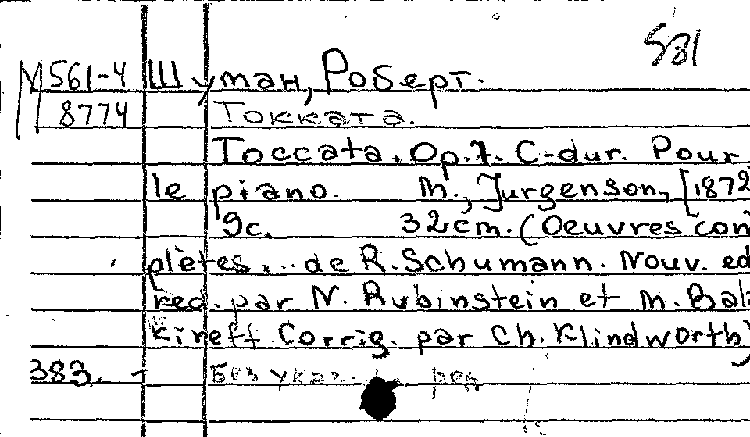 581
М561-4 Шуман, Роберт.
8774 Токката.
Toccata. Op.7. C-dur. Pour
le piano. M., Jurgenson, [1872
9с. 32cm. (Oeuvres com
plètes... de R. Schumann. Nouv. ed
red. par N. Rubinstein et M. Bala
kireff Corrig. par Ch. Klindworth)
383. - Без указ. ред